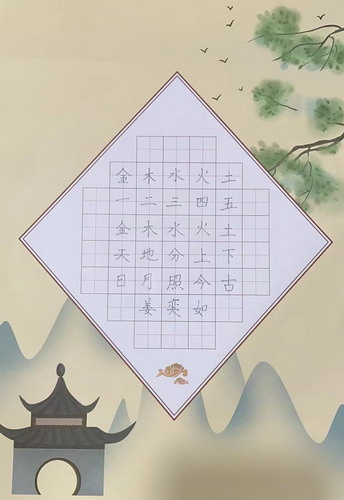 金木水火土
一二三四五
金木水火土
天地分上下
日月照今古
姜奕如